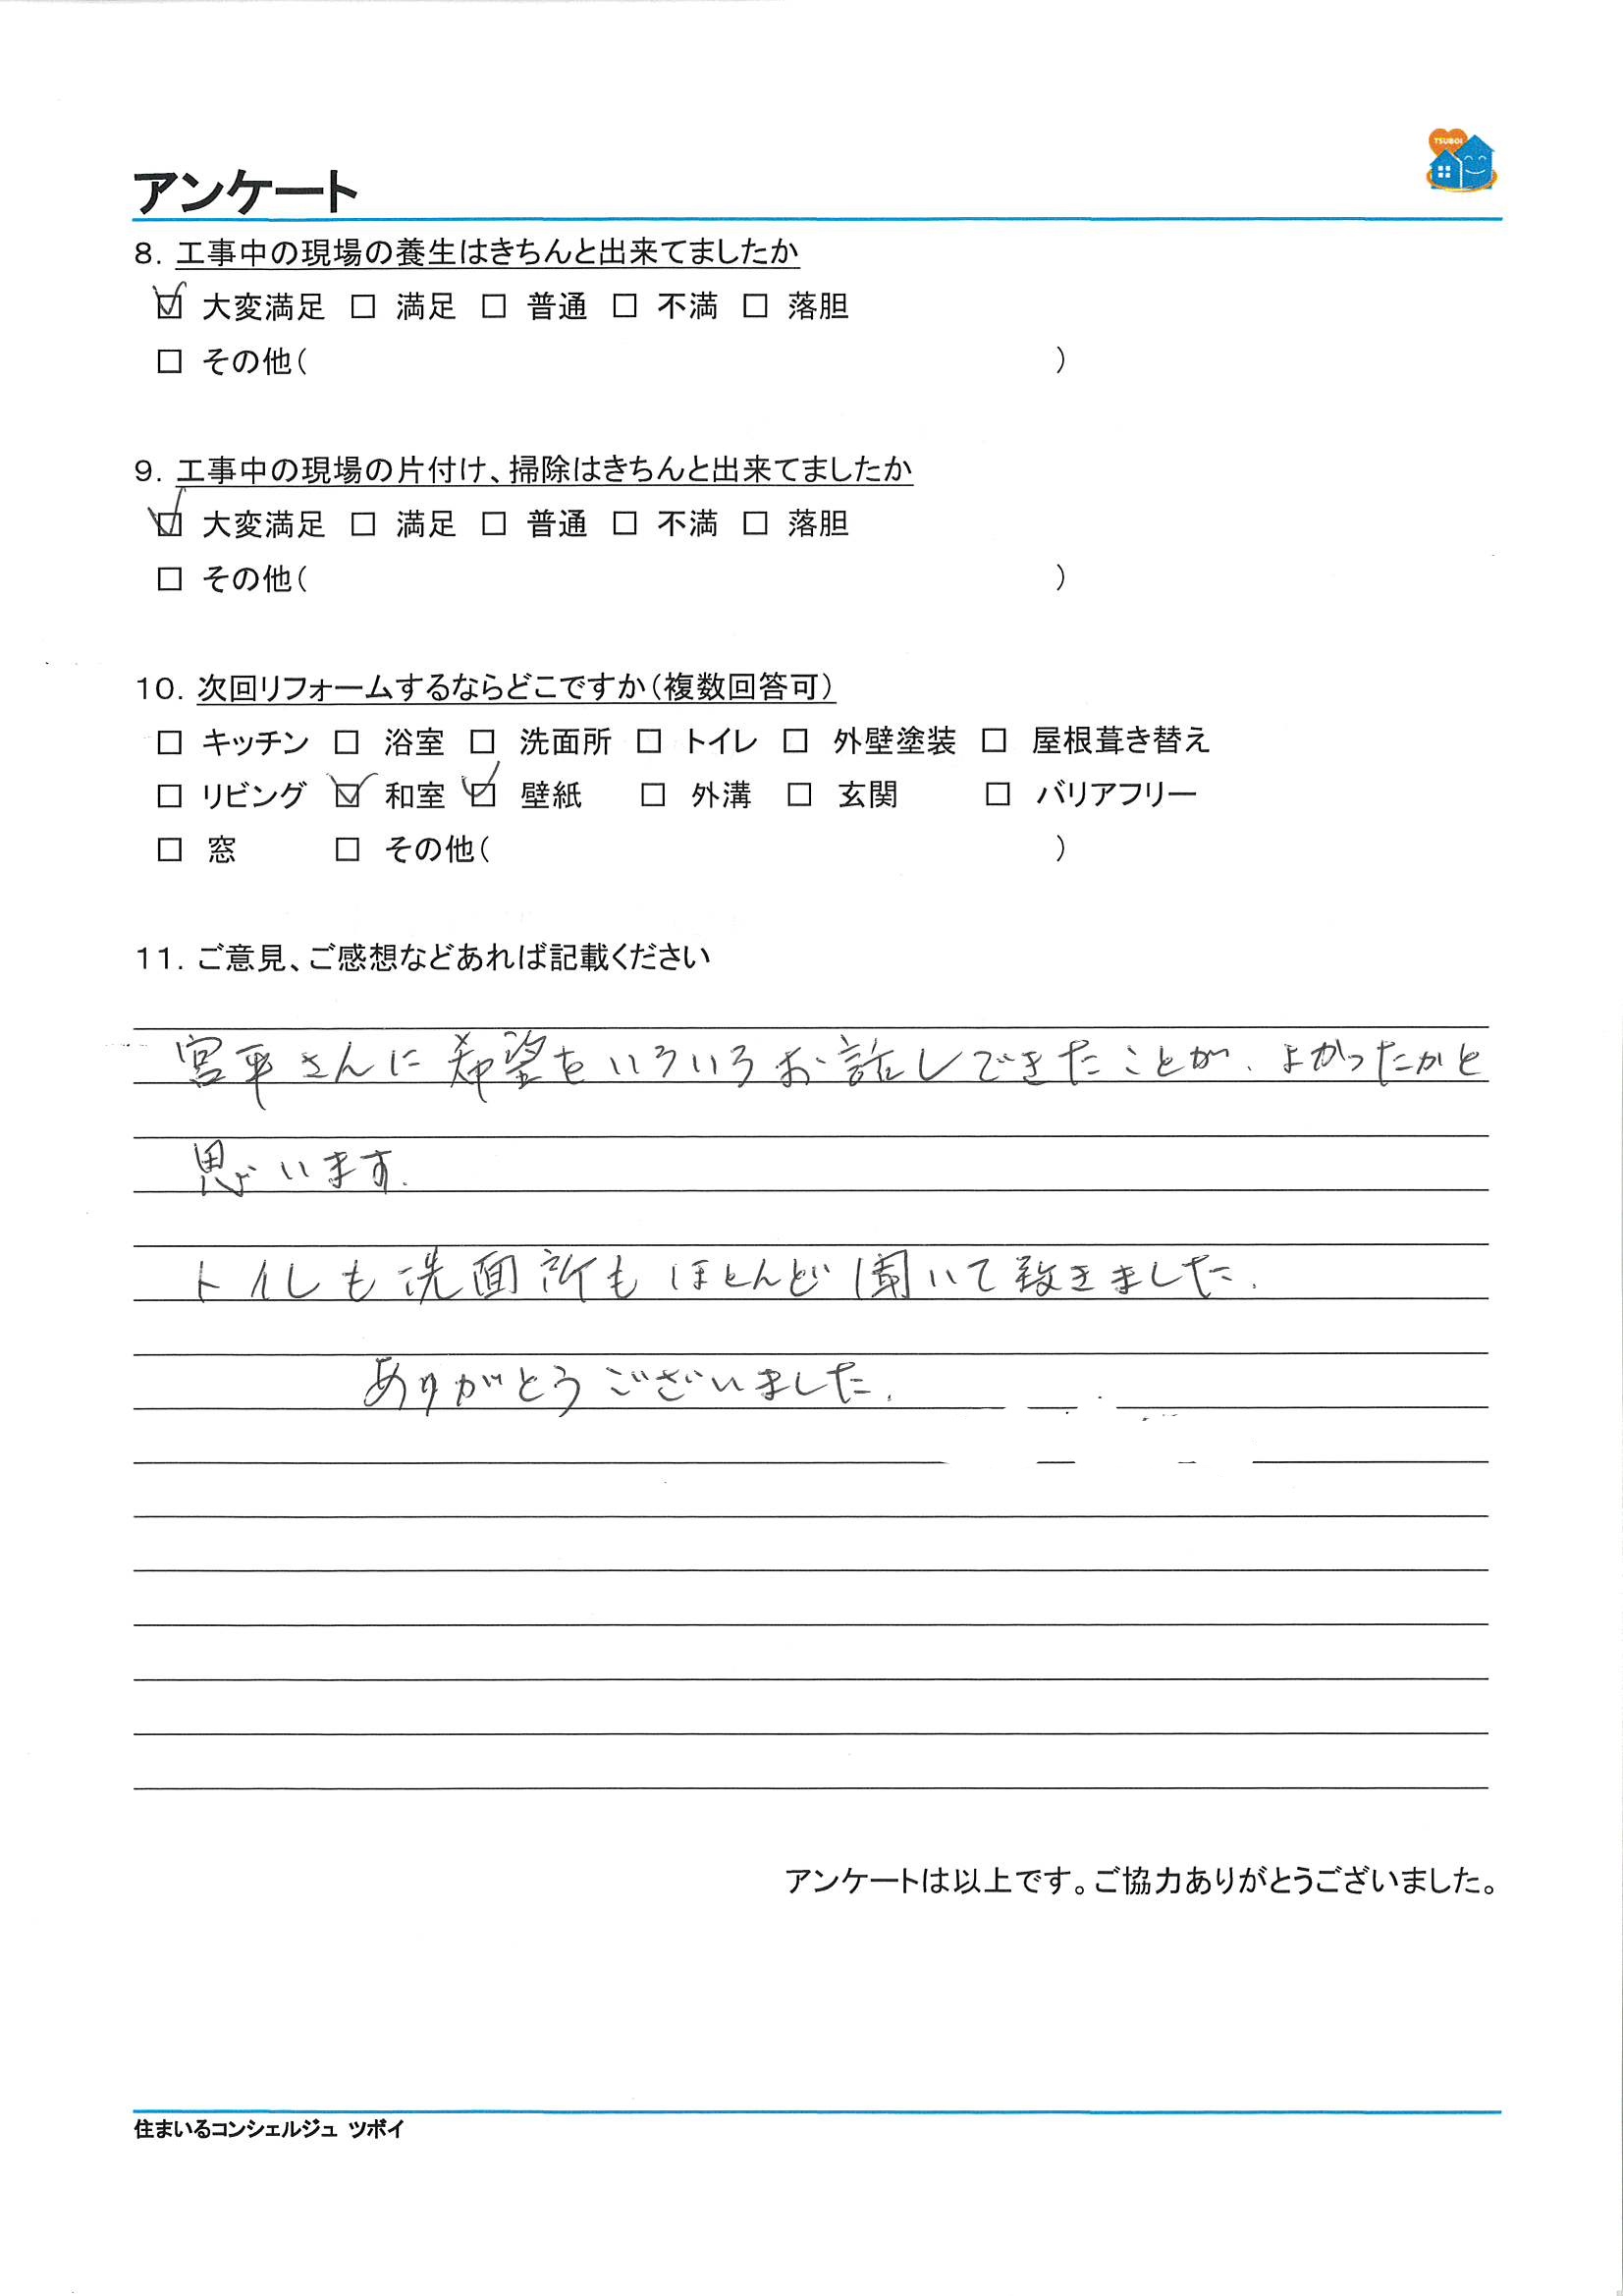 TSUBOI
アンケート
8. 工事中の現場の養生はきちんと出来てましたか
☑ 大変満足 □ 満足 □ 普通 □ 不満 □ 落胆
□ その他( )
9. 工事中の現場の片付け、掃除はきちんと出来てましたか
☑ 大変満足 □ 満足 □ 普通 □ 不満 □ 落胆
□ その他( )
10. 次回リフォームするならどこですか(複数回答可)
□ キッチン □ 浴室 □ 洗面所 □ トイレ □ 外壁塗装 □ 屋根葺き替え
□ リビング ☑ 和室 ☑ 壁紙 □ 外溝 □ 玄関 □ バリアフリー
□ 窓 □ その他( )
11. ご意見、ご感想などあれば記載ください
宮平さんに希望をいろいろお話しできたことが、よかったかと
思います.
トイレも洗面所もほとんど聞いて致きました.
ありがとうございました.
アンケートは以上です。ご協力ありがとうございました。
住まいるコンシェルジュ ツボイ